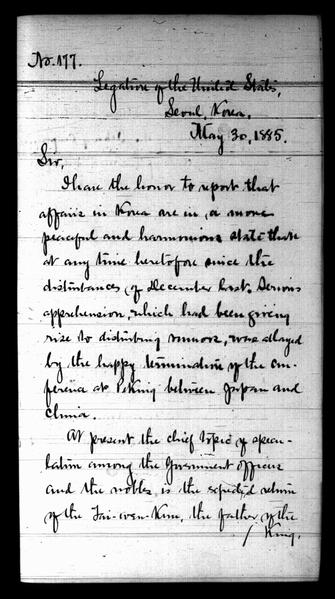 No. 177.
Legation of the United States,
Seoul, Korea.
May 30, 1885.
Sir,
I have the honor to report that
affairs in Korea are in, a more
peaceful and harmonious state than
at any time heretofore since the
disturbances of December last. Serious
apprehension, which had been giving
rise to disturbing rumors, was allayed
by the happy termination of the con-
ference at Peking between Japan and
China.
At present the chief topic of specu-
lation among the Government officers
and the nobles is the expected return
of the Tai-wen-Kun, the father of the
King.